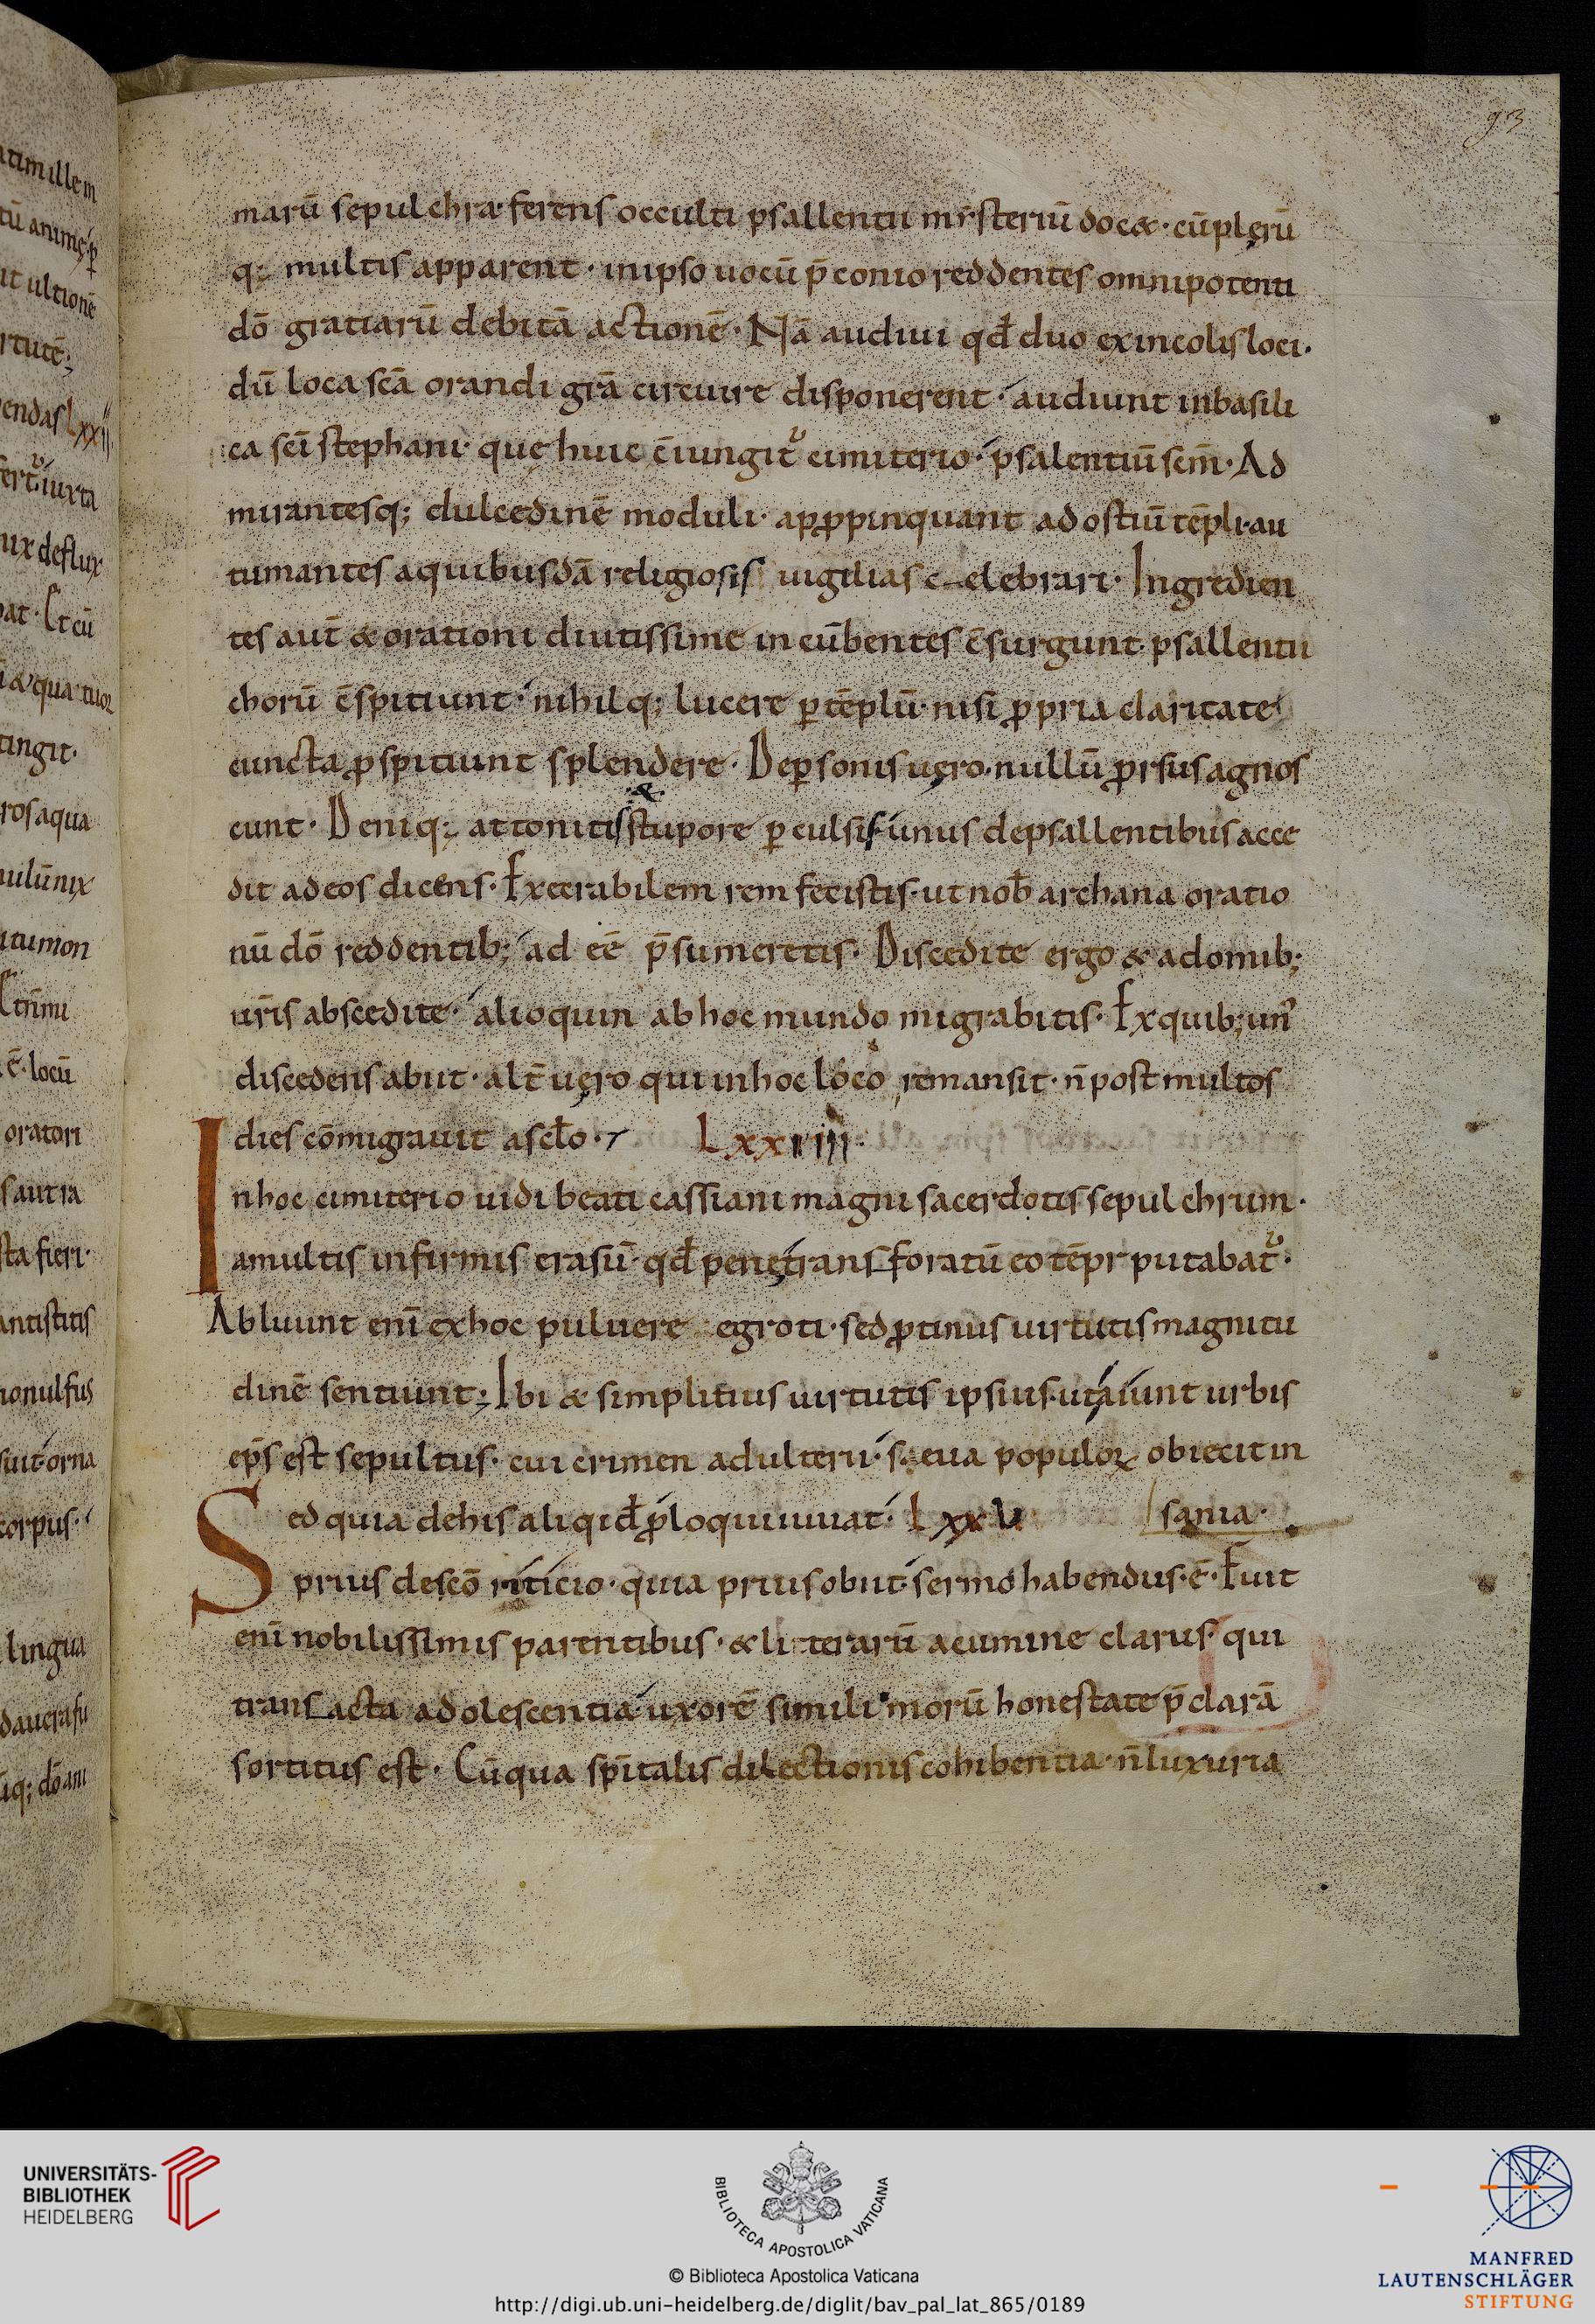 93
marū sepulchra ferens occulti psallentii mysteriū docæ · cū plęrū
q; multis apparent · in ipso uocū p̄conio reddentes omnipotenti
dō gratiarū debitā actionē · Nā audiui qđ duo ex incolis loci ·
dū loca scā orandi grā circuire disponerent · audiunt in basili
ca sci stephani · quę huic c̄iungit᷑ cimiterio · psalentiū sem̄ · Ad
mirantesq; dulcedinē moduli · appropinquant ad ostiū tēpli · au
tumantes a quibusdā religiosis uigilias celebrari · Ingredien
tes aut̄ & orationi diutissime incūbentes c̄surgunt · psallentii
chorū c̄spitiunt · nihilq; lucere p̱ tēplū · nisi ꝓpria claritate
cuncta ꝓspitiunt splendere · De p̱sonis uęro · nullū ꝓrsus agnos
&
cunt · Deniq; attonitis stupore p̱culsis · unus de psallentibus acce
dit ad eos dicens · Execrabilem rem fecistis · ut nob̄ archana oratio
nū dō reddentib; ad eē p̄sumerttis · Discedite ergo & a domib;
uris abscedite · alioquin ab hoc mundo migrabitis · Ex quib; un᷒
discedens abiit · alt̄ uęro qui in hoc loco remansit · n̄ post multos
dies cōmigrauit a scl̄o · LXXIIII ·
In hoc cimiterio uidi beati cassiani magni sacerdotis sepulchrum ·
a multis infirmis erasū · qđ penętrans foratū eo tēpr putabat᷑ ·
Abluunt eni ex hoc puluere egroti · sed ꝓtinus uirtutis magnitu
dinē sentiunt; Ibi & simplitius uirtutis ipsius · ut aiunt urbis
ep̄s est sepultus · cui crimen adulterii · sæua populoꝝ obiecit in
Sed quia de his aliqid ꝓloqui iuuat · LXXV sania ·
prius de scō riticio · quia prius obiit · sermo habendus · ē · Fuit
eni nobilissimis parentibus · & litterarū acumine clarus · qui
transacta adolescentia · uxorē simili morū honestate p̄clarā
sortitus est · Cū qua sp̄italis dilectionis cohibentia · n̄ luxuria
UNIVERSITÄTS-
BIBLIOTHEK
HEIDELBERG
BIBLIOTECA APOSTOLICA VATICANA
© Biblioteca Apostolica Vaticana
http://digi.ub.uni-heidelberg.de/diglit/bav_pal_lat_865/0189
MANFRED
LAUTENSCHLÄGER
STIFTUNG